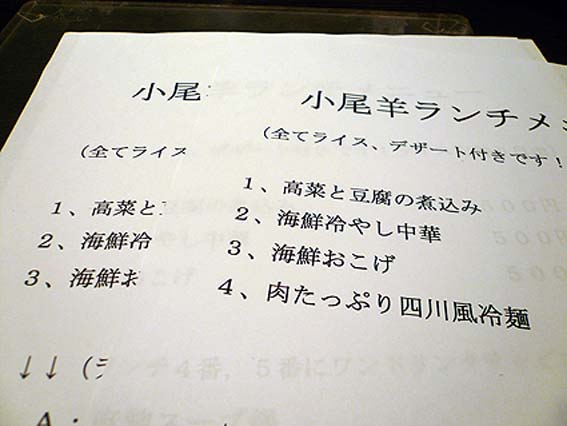 小尾
(全てライス
1、高菜と
2、海鮮冷
3、海鮮お
↓↓(ラ
A:
小尾羊ランチメ
(全てライス、デザート付きです!
1、高菜と豆腐の煮込み
2、海鮮冷やし中華
3、海鮮おこげ
4、肉たっぷり四川風冷麺